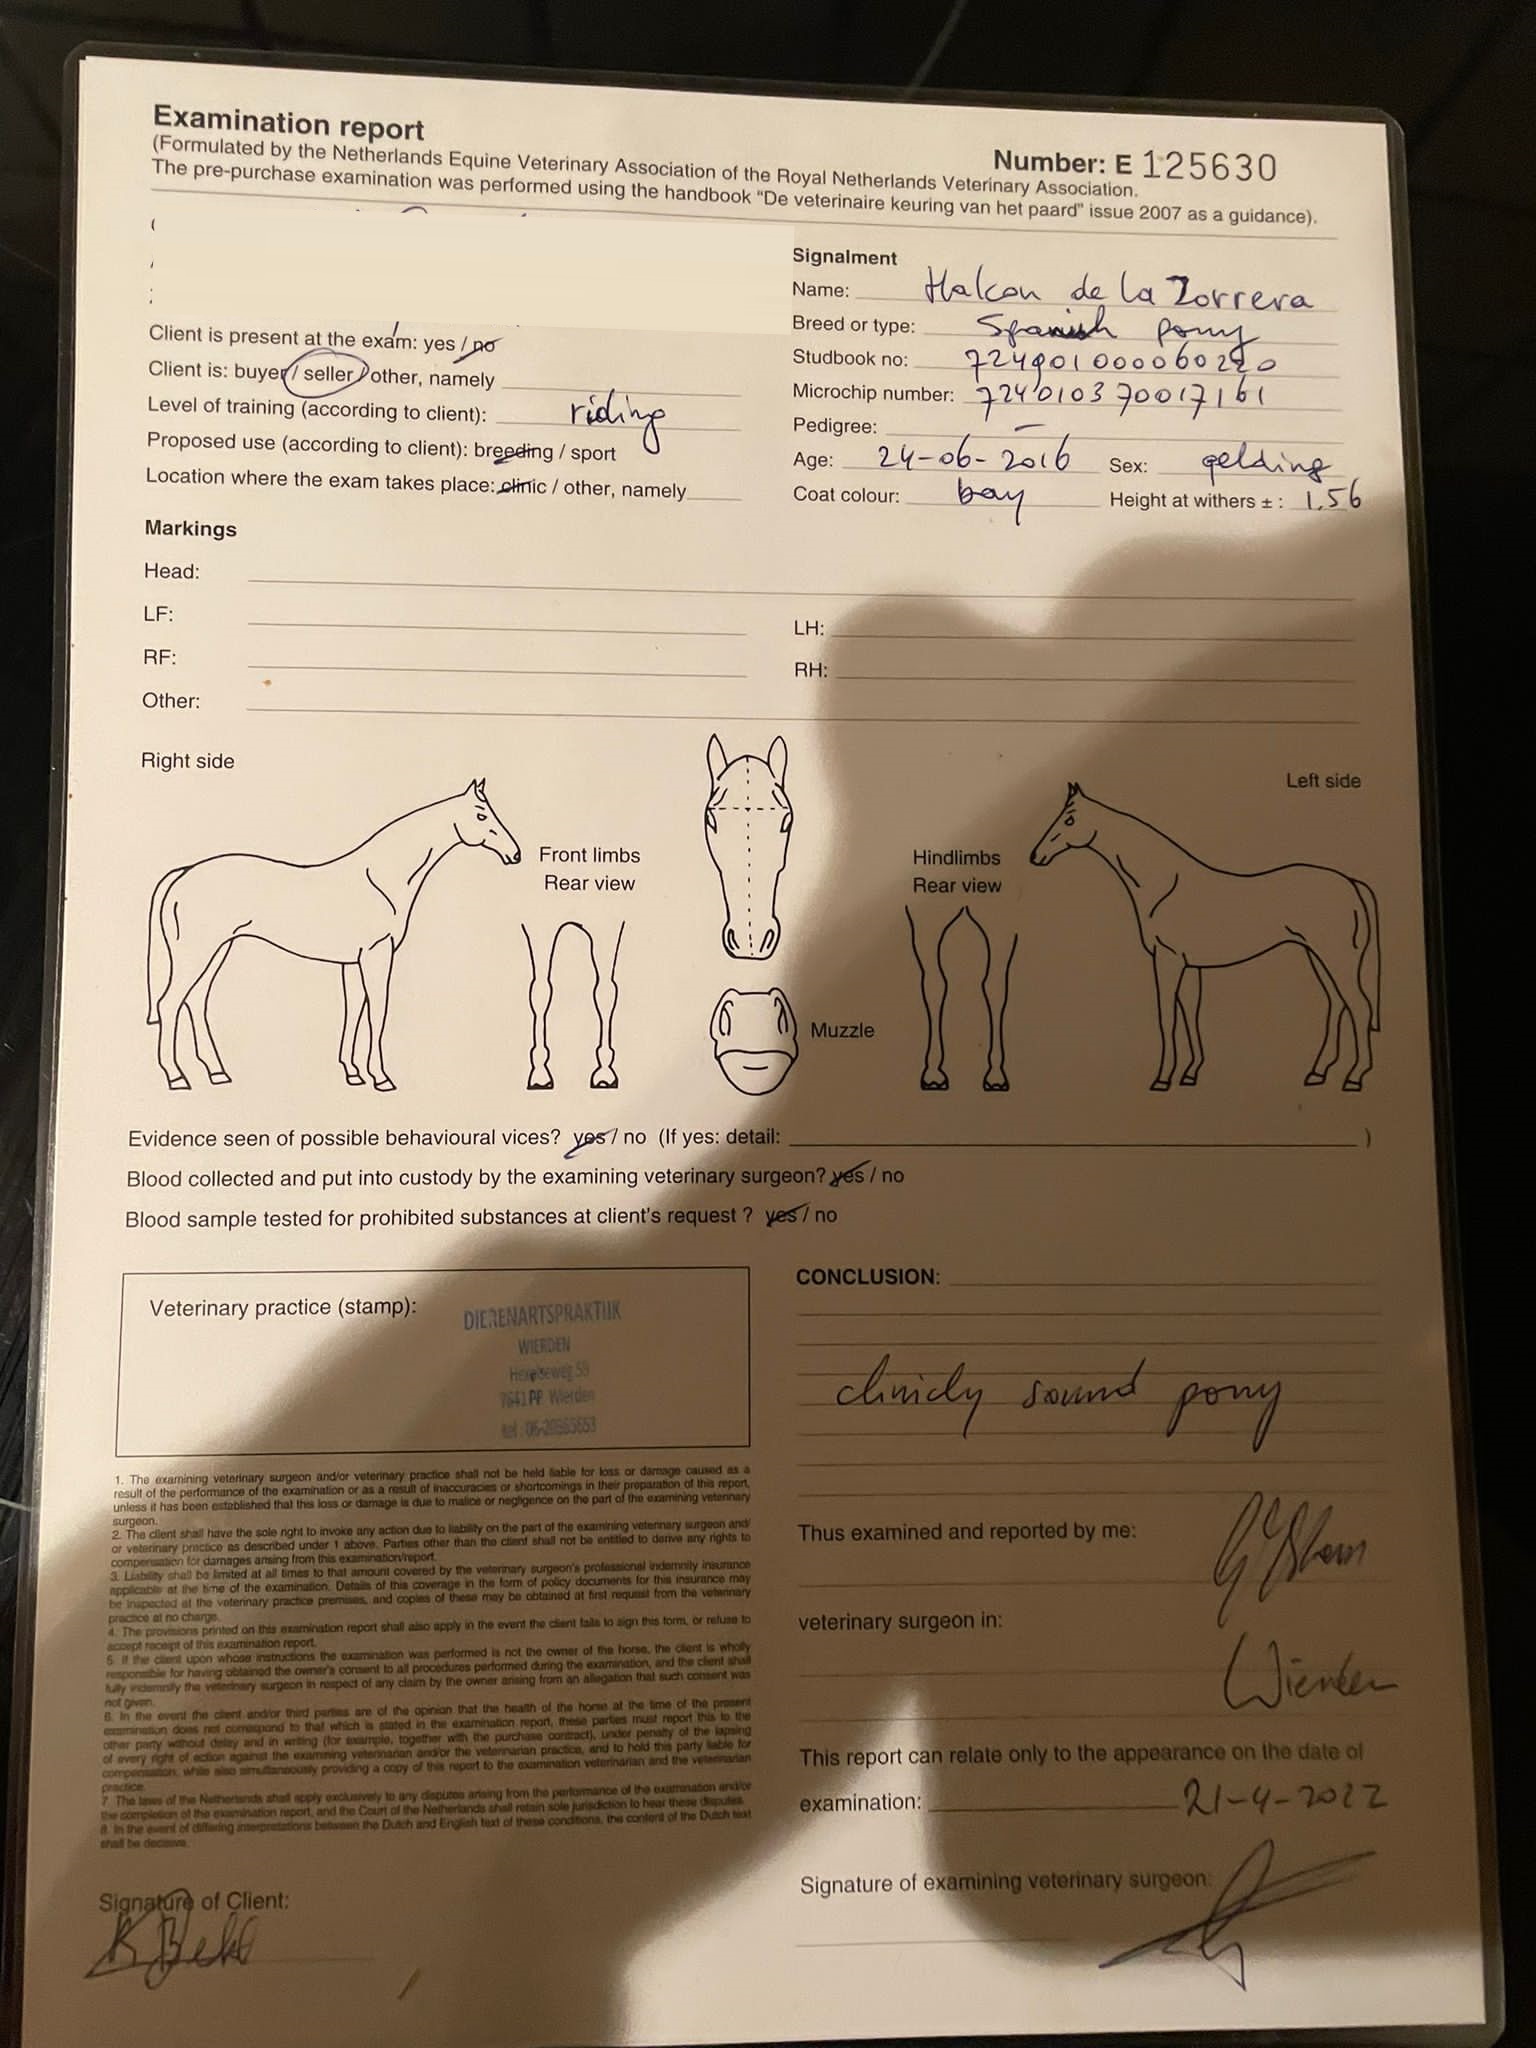 Examination report
Number: E 125630
(Formulated by the Netherlands Equine Veterinary Association of the Royal Netherlands Veterinary Association.
The pre-purchase examination was performed using the handbook "De veterinaire keuring van het paard" issue 2007 as a guidance).
Client is present at the exam: yes / no
Client is: buyer / seller / other, namely
Level of training (according to client): riding
Proposed use (according to client): breeding / sport
Location where the exam takes place: clinic / other, namely
Signalment
Name: Halcon de la Zorrera
Breed or type: Spanish pony
Studbook no: 724901000060220
Microchip number: 724010370017161
Pedigree: -
Age: 24-06-2016 Sex: gelding
Coat colour: bay Height at withers ± : 1.56
Markings
Head:
LF:
LH:
RF:
RH:
Other:
Right side
Left side
Front limbs
Rear view
Hindlimbs
Rear view
Muzzle
Evidence seen of possible behavioural vices? yes / no (If yes: detail: )
Blood collected and put into custody by the examining veterinary surgeon? yes / no
Blood sample tested for prohibited substances at client's request ? yes / no
Veterinary practice (stamp):
DIERENARTSPRAKTIJK
WIERDEN
Hexelseweg 59
7641 PF Wierden
1. The examining veterinary surgeon and/or veterinary practice shall not be held liable for loss or damage caused as a
result of the performance of the examination or as a result of inaccuracies or shortcomings in their preparation of this report,
unless it has been established that this loss or damage is due to malice or negligence on the part of the examining veterinary
surgeon.
2. The client shall have the sole right to invoke any action due to liability on the part of the examining veterinary surgeon and/
or veterinary practice as described under 1 above. Parties other than the client shall not be entitled to derive any rights to
compensation for damages arising from this examination/report.
3. Liability shall be limited at all times to that amount covered by the veterinary surgeon's professional indemnity insurance
applicable at the time of the examination. Details of this coverage in the form of policy documents for this insurance may
be inspected at the veterinary practice premises, and copies of these may be obtained at first request from the veterinary
practice at no charge.
4. The provisions printed on this examination report shall also apply in the event the client fails to sign this form, or refuse to
accept receipt of this examination report.
5. If the client upon whose instructions the examination was performed is not the owner of the horse, the client is wholly
responsible for having obtained the owner's consent to all procedures performed during the examination, and the client shall
fully indemnify the veterinary surgeon in respect of any claim by the owner arising from an allegation that such consent was
not given.
6. In the event the client and/or third parties are of the opinion that the health of the horse at the time of the present
examination does not correspond to that which is stated in the examination report, these parties must report this to the
other party without delay and in writing (for example, together with the purchase contract), under penalty of the lapsing
of every right of action against the examining veterinarian and/or the veterinarian practice, and to hold this party liable for
compensation, while also simultaneously providing a copy of this report to the examination veterinarian and the veterinarian
practice.
7. The laws of the Netherlands shall apply exclusively to any disputes arising from the performance of the examination and/or
the completion of the examination report, and the Court of the Netherlands shall retain sole jurisdiction to hear these disputes.
8. In the event of differing interpretations between the Dutch and English text of these conditions, the content of the Dutch text
shall be decisive.
Signature of Client:
CONCLUSION:
clinicly sound pony
Thus examined and reported by me:
veterinary surgeon in:
Wierden
This report can relate only to the appearance on the date of
examination: 21-4-2022
Signature of examining veterinary surgeon: